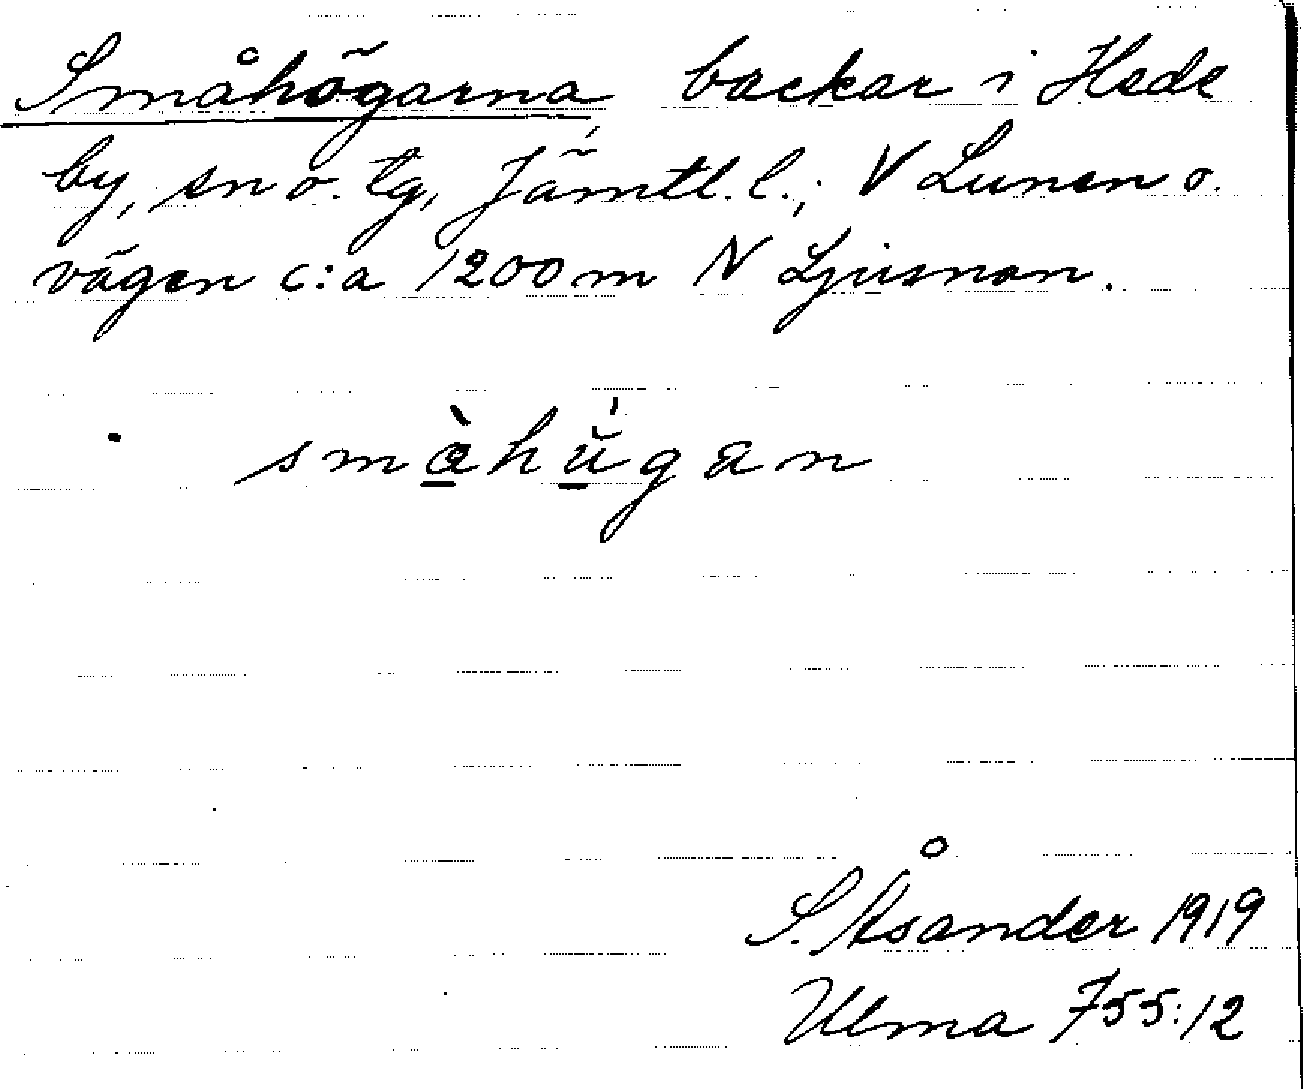 Småhögarna backar i Hede
by, sn o. tg, Jämtl. l.; V Lunen o.
vägen c:a 1200 m N Ljusnan.
småhúgan
S. Åsander 1919
Ulma 755:12